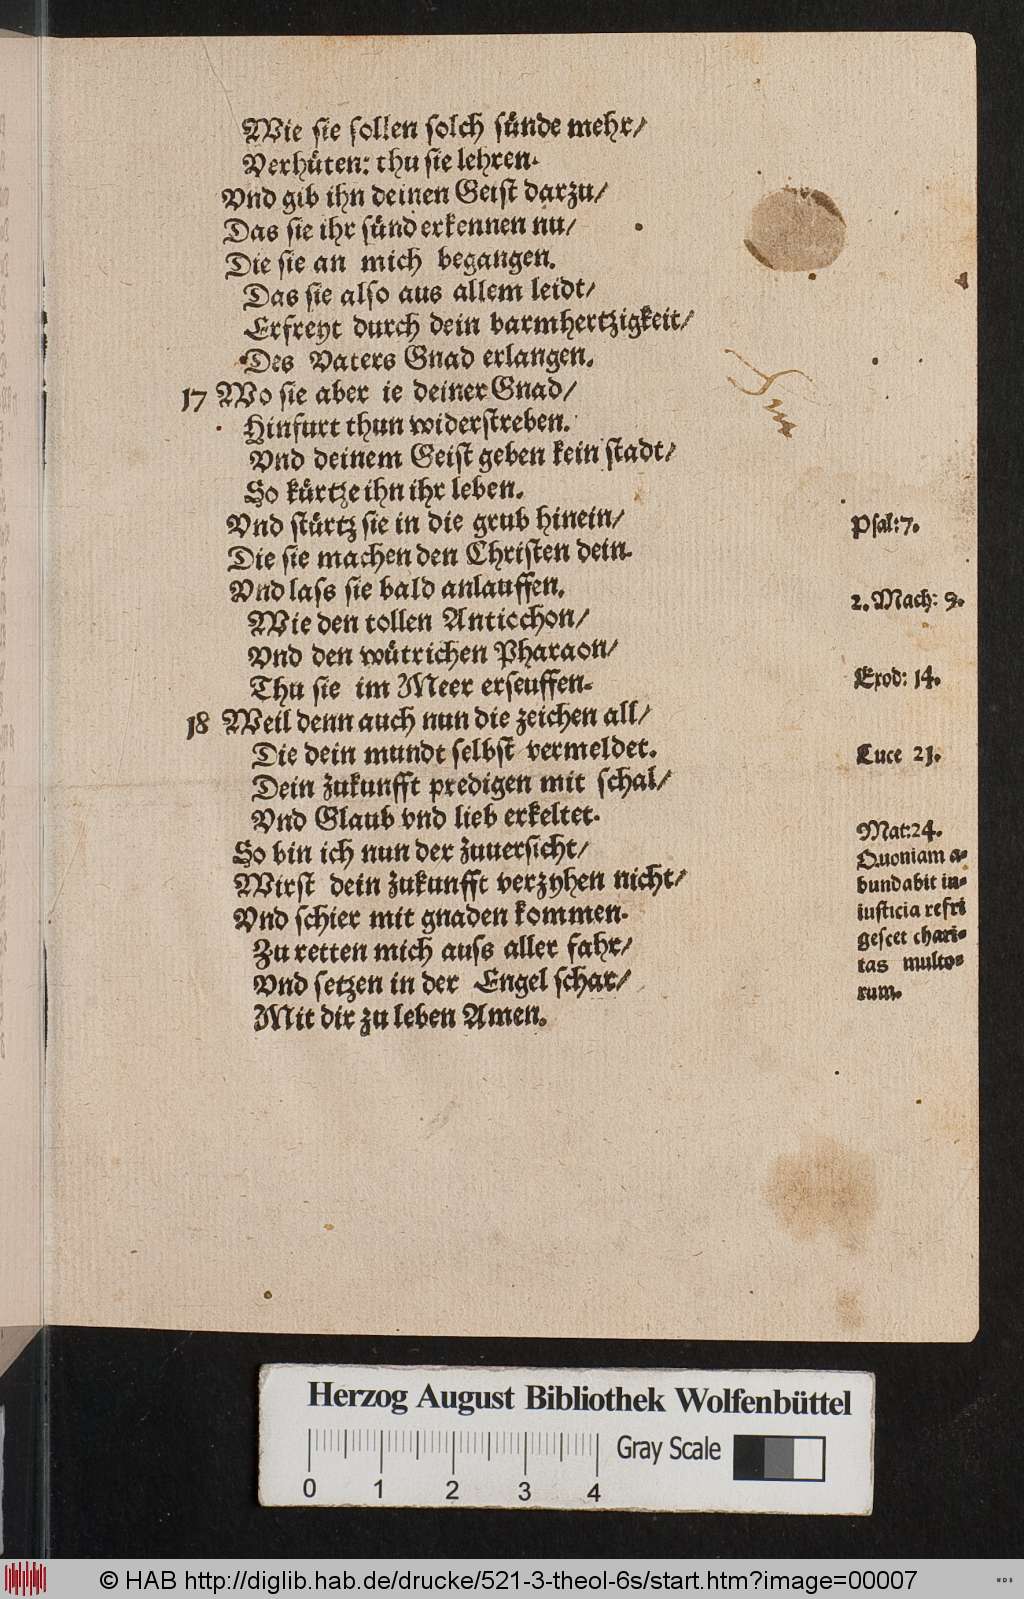 Wie sie sollen solch sünde mehr/
Verhüten: thu sie lehren.
Vnd gib ihn deinen Geist darzu/
Das sie ihr sünd erkennen nu/
Die sie an mich begangen.
Das sie also aus allem leidt/
Erfreyt durch dein barmhertzigkeit/
Des Vaters Gnad erlangen.
17 Wo sie aber ie deiner Gnad/
Hinfurt thun widerstreben.
Vnd deinem Geist geben kein stadt/
So kürtze ihn ihr leben.
Vnd stürtz sie in die grub hinein/
Psal:7.
Die sie machen den Christen dein.
Vnd lass sie bald anlauffen.
2. Mach: 9.
Wie den tollen Antiochon/
Vnd den wütrichen Pharaon/
Thu sie im Meer erseuffen.
Exod: 14.
18 Weil denn auch nun die zeichen all/
Die dein mundt selbst vermeldet.
Luce 21.
Dein zukunfft predigen mit schal/
Vnd Glaub vnd lieb erkeltet.
So bin ich nun der zuuersicht/
Wirst dein zukunfft verzyhen nicht/
Vnd schier mit gnaden kommen.
Zu retten mich auss aller fahr/
Vnd setzen in der Engel schar/
Mit dir zu leben Amen.
Mat:24.
Quoniam a-
bundabit in-
iusticia refri
gescet chari-
tas multo-
rum.
Herzog August Bibliothek Wolfenbüttel
Gray Scale
0 1 2 3 4
© HAB http://diglib.hab.de/drucke/521-3-theol-6s/start.htm?image=00007